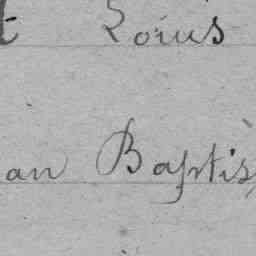 t Louis
an Baptis